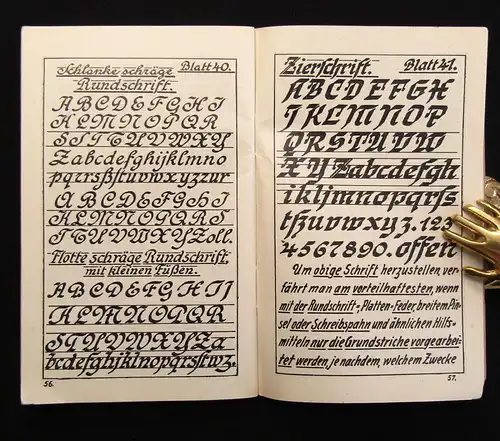 Schlanke schräge Blatt 40.
Rundschrift.
ABCDEFGHIJ
KLMNOPQR
STUVWXYZ
Zabcdefghijklmno
pqrsßtuvwxyzzur
ABCDEFGHIJ
KLMNOPQRS
TUVWXYZoll.
Flotte schräge Rundschrift
mit kleinen Füßen.
ABCDEFGHIJ
KLMNOPQR
STUVWXYZa
bcdefghijklnopqrsſtwz.
56.
Zierschrift. Blatt 41.
ABCDEFGH
IJKLMNOP
QRSTUVW
XYZabcdefgh
ikljmnopqrſs
tßuvwxyz.123
4567890.offen
Um obige Schrift herzustellen, ver-
fährt man am vorteilhaftesten, wenn
mit der Rundschrift-, Platten-Feder, breitem Pin-
sel oder Schreibspahn und ähnlichen Hilfs-
mitteln nur die Grundstriche vorgearbei-
tet werden, je nachdem, welchem Zwecke
57.